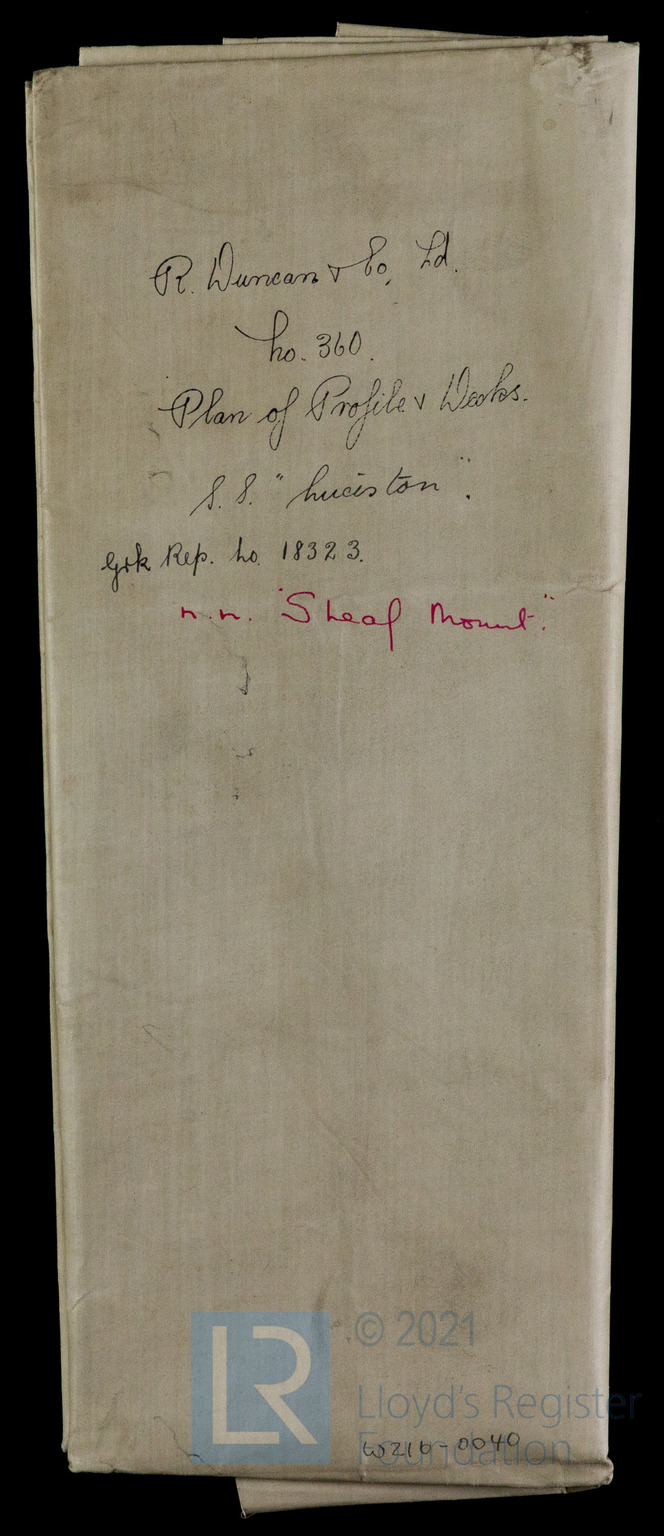 R. Duncan & Co, Ld.
No. 360.
Plan of Profile & Decks.
S.S. "Luciston".
Grk Rep. No. 18323.
n.n. "Sheaf Mount".
LR
© 2021
Lloyd's Register
Foundation
W216-0040